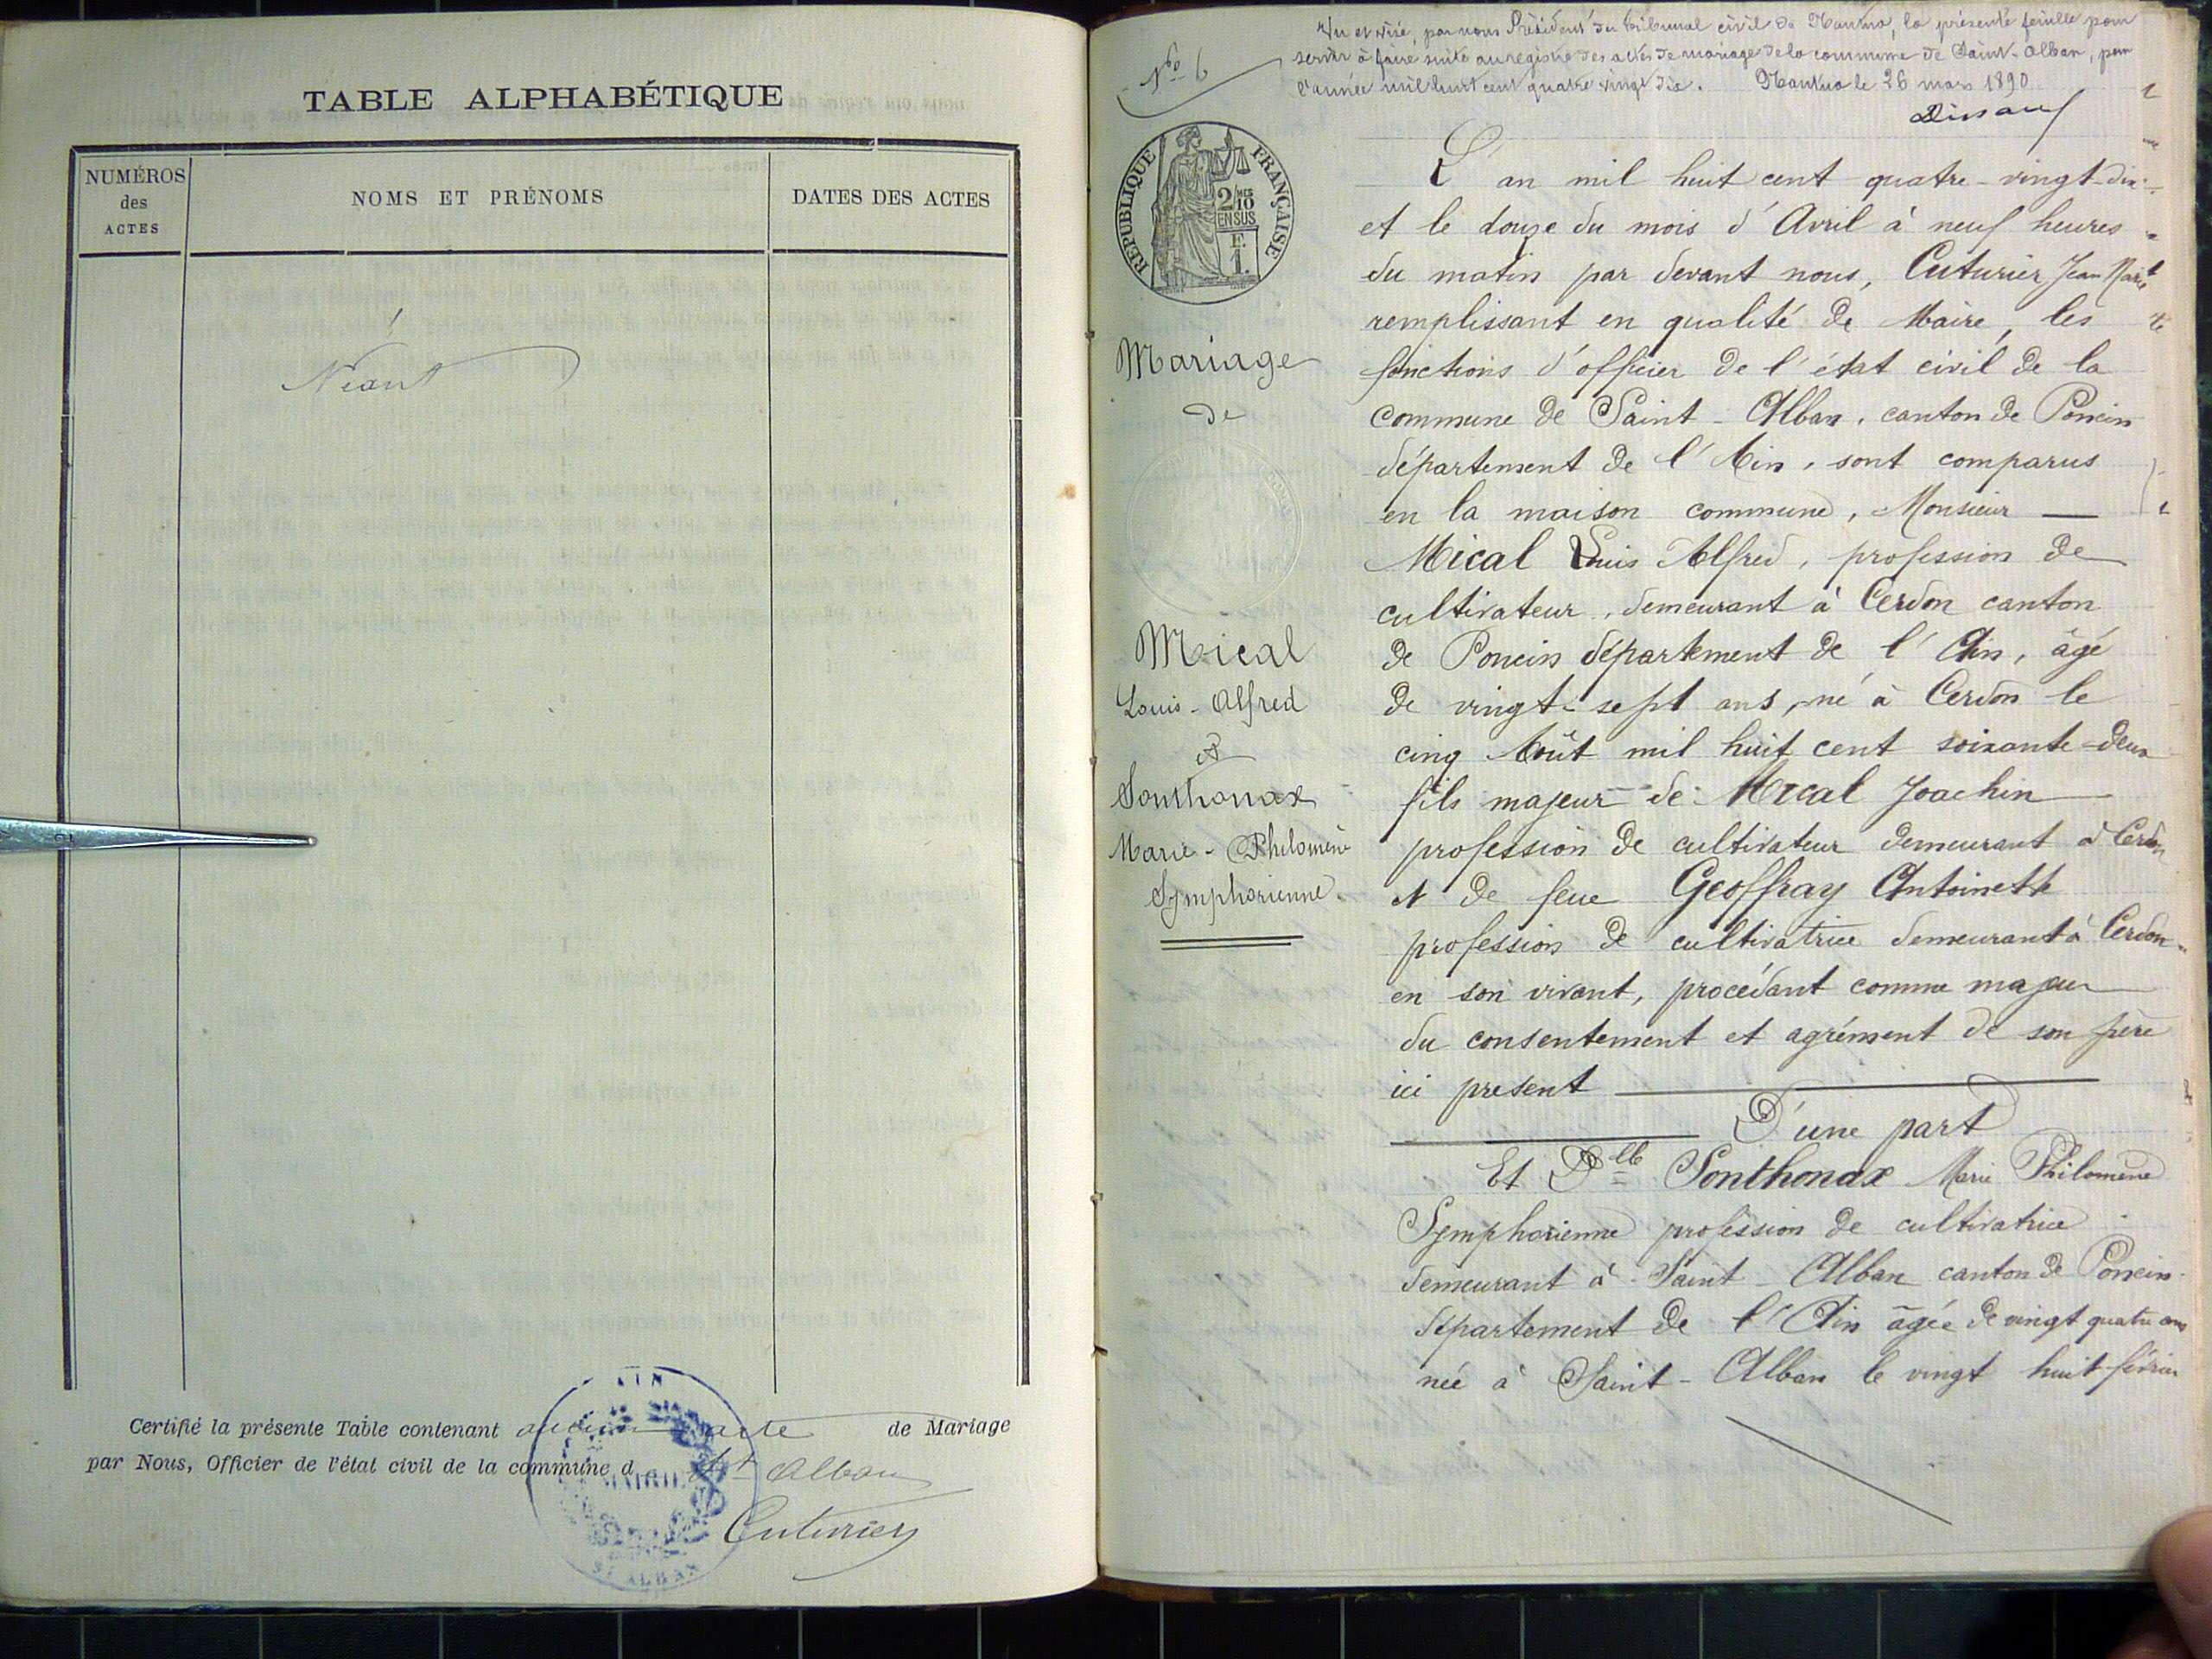 TABLE ALPHABÉTIQUE
NUMÉROS
des
ACTES
NOMS ET PRÉNOMS
DATES DES ACTES
Néant
Certifié la présente Table contenant aucun acte de Mariage
par Nous, Officier de l'état civil de la commune de St Alban
Cuturier
AIN
MAIRIE
ST ALBAN
Vu et visé, par nous Président du tribunal civil de Nantua, la présente feuille pour
servir à faire suite au registre des actes de mariage de la commune de Saint-Alban, pour
l'année mil huit cent quatre vingt dix. Nantua le 26 mars 1890
No 6
RÉPUBLIQUE FRANÇAISE
2/10
EN SUS
F.
1.
Mariage
de
Mical
Louis-Alfred
et
Sonthonax
Marie-Philomène
Symphorienne
L'an mil huit cent quatre-vingt-dix
et le douze du mois d'Avril à neuf heures
du matin par devant nous, Cuturier Jean Marie
remplissant en qualité de Maire, les
fonctions d'officier de l'état civil de la
commune de Saint-Alban, canton de Poncin
département de l'Ain, sont comparus
en la maison commune, Monsieur
Mical Louis Alfred, profession de
cultivateur, demeurant à Cerdon canton
de Poncin département de l'Ain, âgé
de vingt-sept ans, né à Cerdon le
cinq Août mil huit cent soixante-deux
fils majeur de Mical Joachin
profession de cultivateur demeurant à Cerdon
et de feue Geoffray Antoinette
profession de cultivatrice demeurant à Cerdon
en son vivant, procédant comme majeur
du consentement et agrément de son père
ici present
D'une part
Et Dlle Sonthonax Marie Philomène
Symphorienne profession de cultivatrice
demeurant à Saint-Alban canton de Poncin
département de l'Ain âgée de vingt quatre ans
née à Saint-Alban le vingt huit février